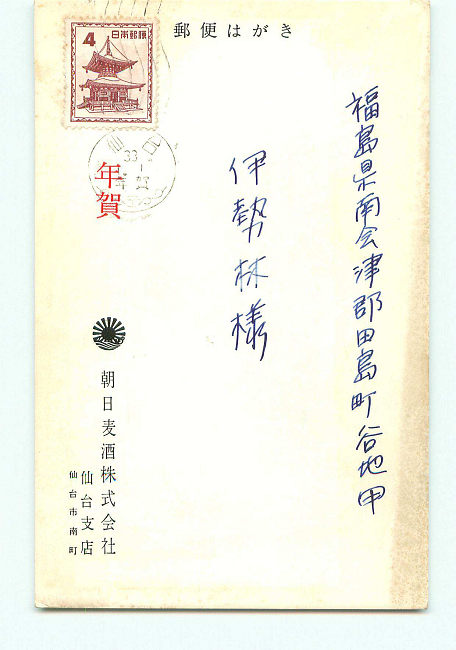 郵便はがき
4 日本郵便
福島県南会津郡田島町谷地甲
伊勢林様
仙台
33
年賀
年賀
朝日麦酒株式会社
仙台支店
仙台市南町